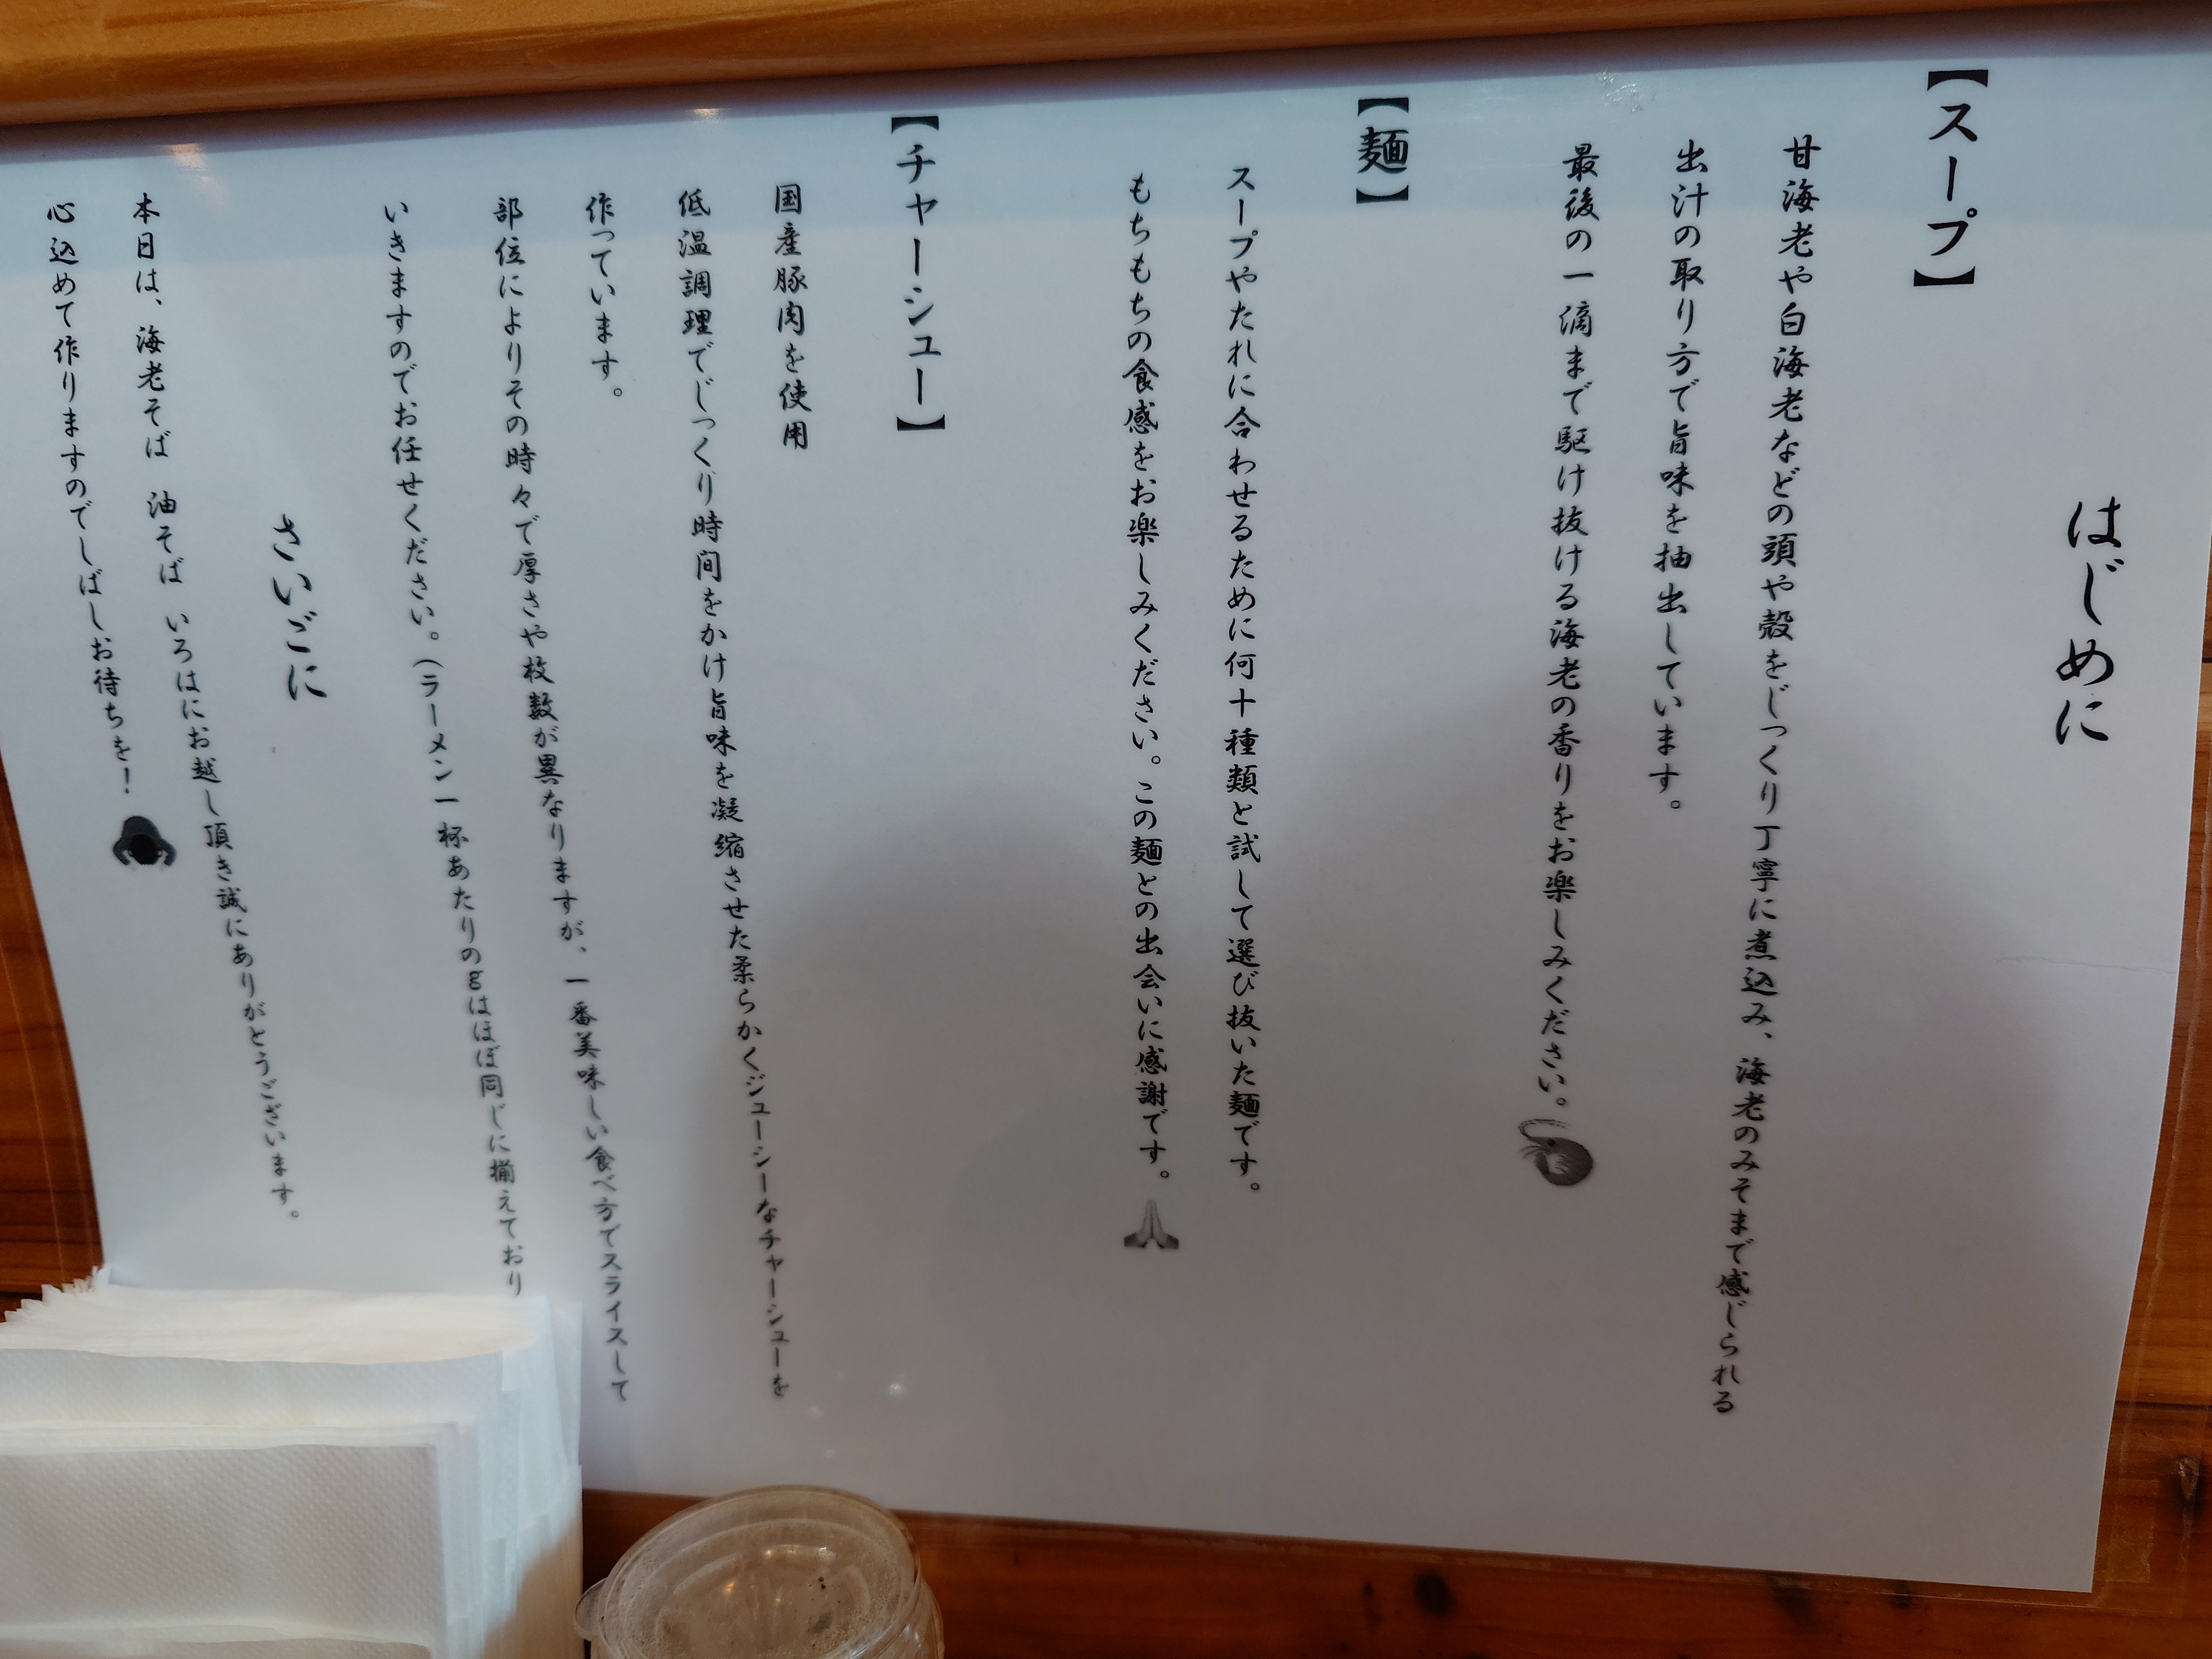 はじめに
【スープ】
甘海老や白海老などの頭や殻をじっくり丁寧に煮込み、海老のみそまで感じられる
出汁の取り方で旨味を抽出しています。
最後の一滴まで駆け抜ける海老の香りをお楽しみください。🦐
【麺】
スープやたれに合わせるために何十種類と試して選び抜いた麺です。
もちもちの食感をお楽しみください。この麺との出会いに感謝です。🙏
【チャーシュー】
国産豚肉を使用
低温調理でじっくり時間をかけ旨味を凝縮させた柔らかくジューシーなチャーシューを
作っています。
部位によりその時々で厚さや枚数が異なりますが、一番美味しい食べ方でスライスして
いきますのでお任せください。（ラーメン一杯あたりのgはほぼ同じに揃えており
さいごに
本日は、海老そば　油そば　いろはにお越し頂き誠にありがとうございます。
心込めて作りますのでしばしお待ちを！🙇